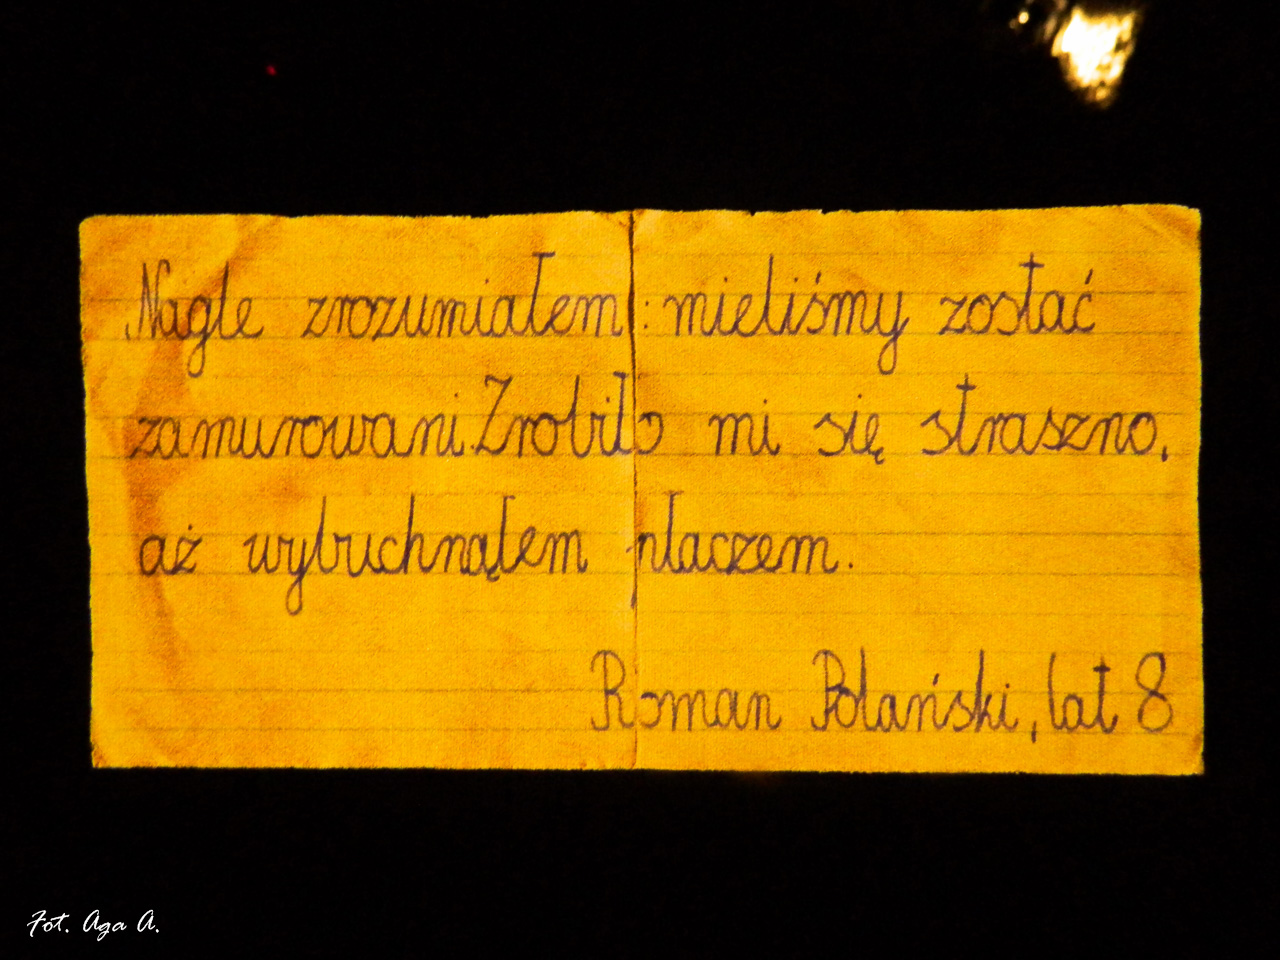 Nagle zrozumiałem: mieliśmy zostać
zamurowani. Zrobiło mi się straszno,
aż wybuchnąłem płaczem.
Roman Polański, lat 8
Fot. Aga A.